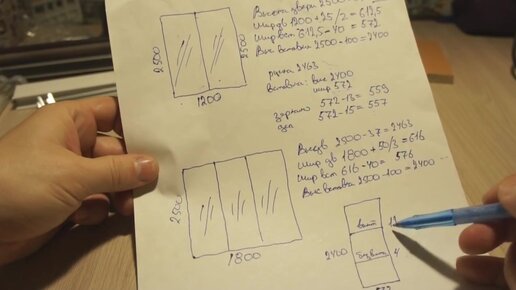 Высота двери 2500
Шир дв 1200 + 25 / 2 = 612,5
Шир вст 612,5 - 40 = 572
Выс вставки 2500 - 100 = 2400
2500
2500
1200
ручка 2463
вставка: выс 2400
шир 572
зеркало 572 - 13 = 559
572 - 15 = 557
Выс дв 2500 - 37 = 2463
Шир дв 1800 + 50/3 = 616
Шир вст 616 - 40 = 576
Выс вставки 2500 - 100 = 2400
2500
1800
2400